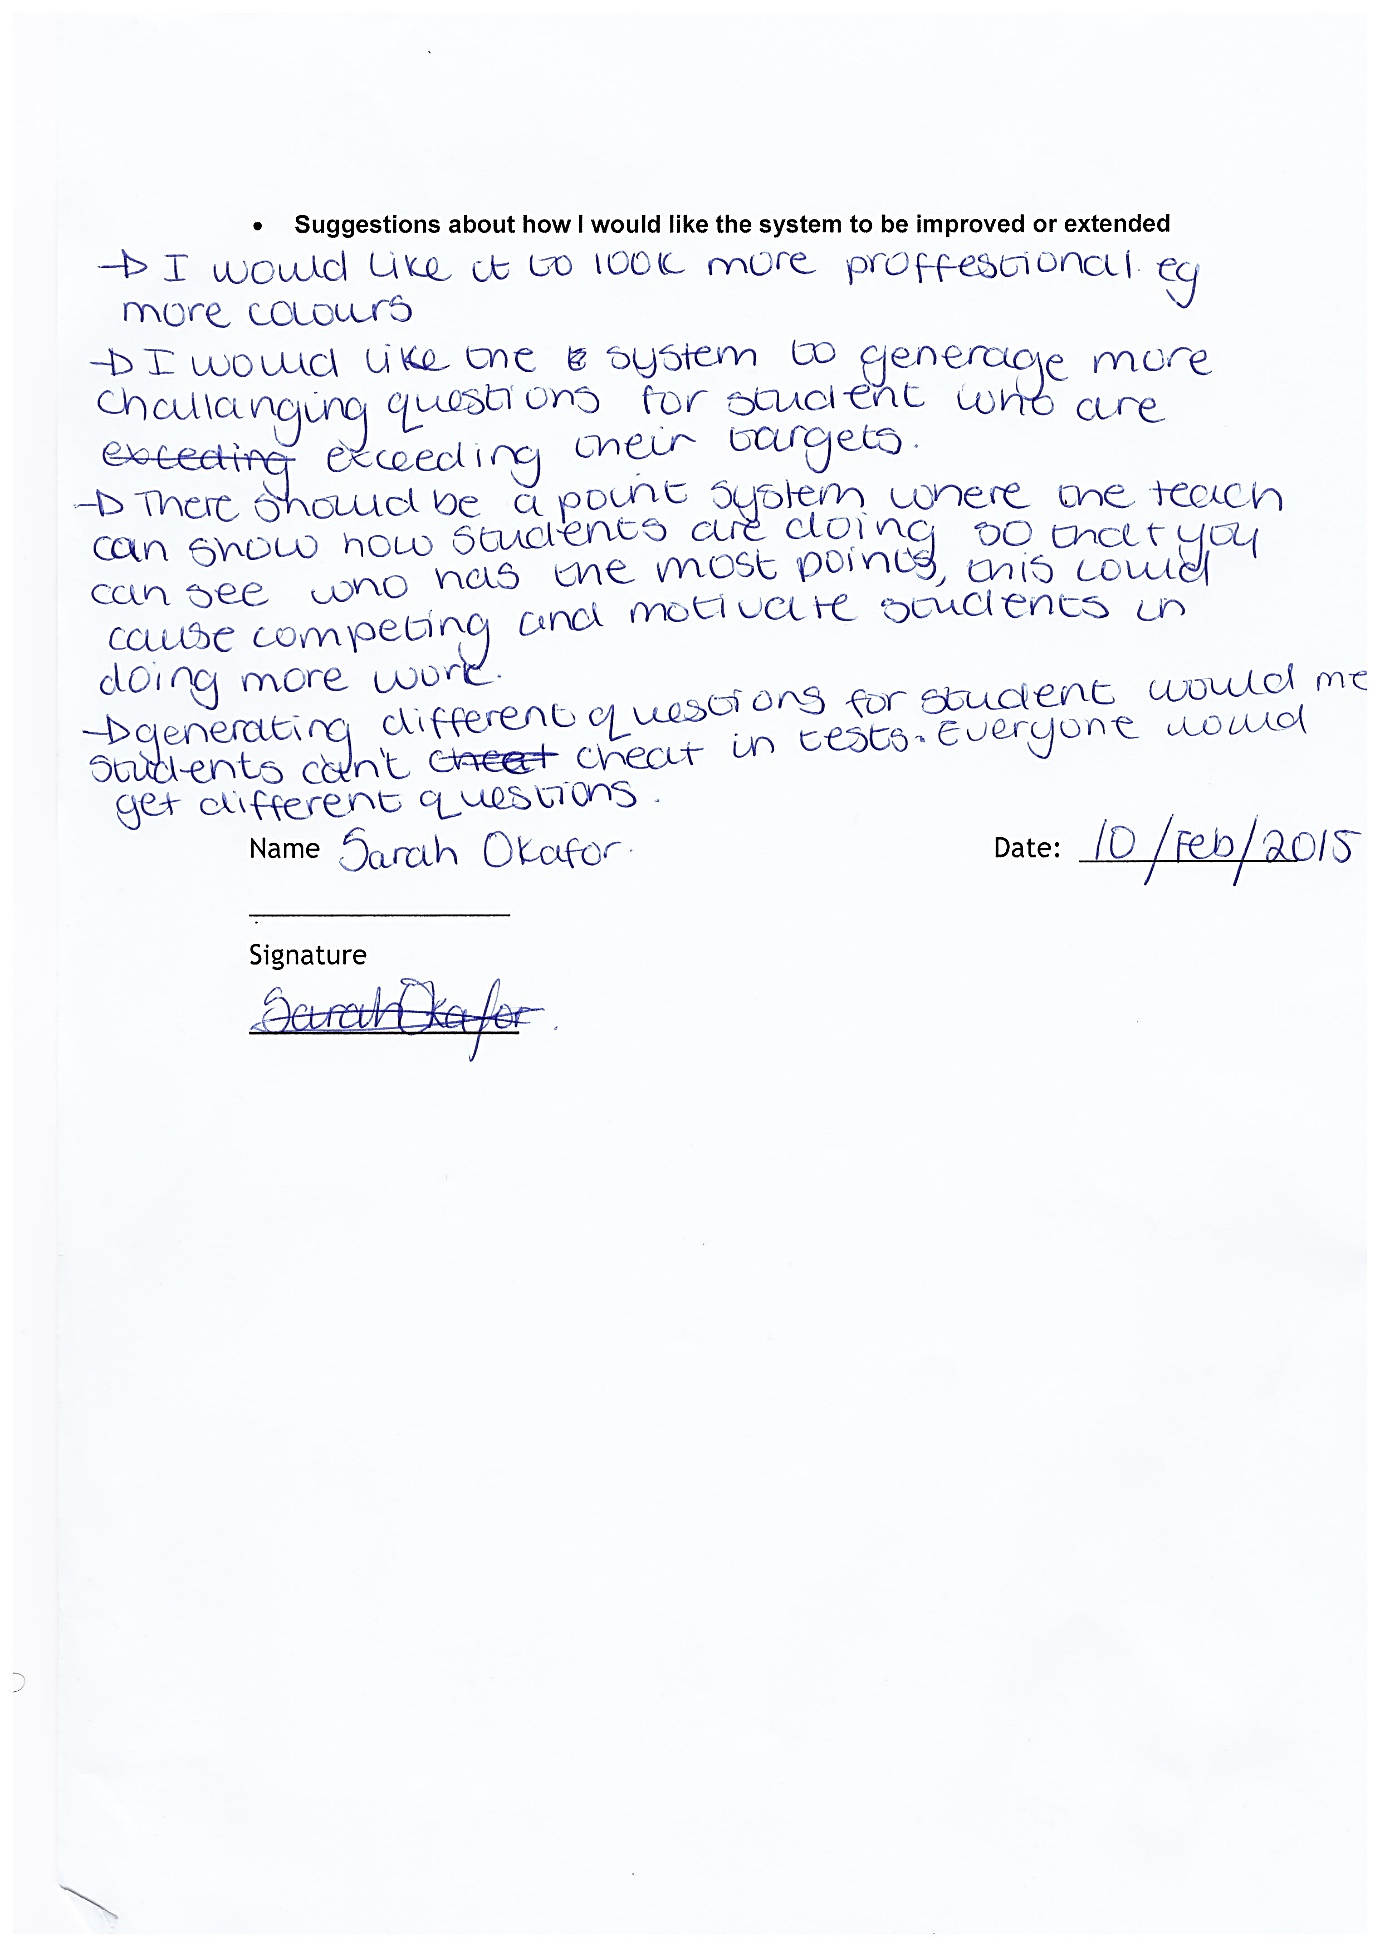 • Suggestions about how I would like the system to be improved or extended
→ I would like it to look more proffessional. eg
more colours
→ I would like the system to generage more
challanging questions for student who are
exceding exceeding their targets.
→ There should be a point system where the teach
can show how students are doing so that you
can see who has the most points, this could
cause competing and motivate students in
doing more work.
→ generating different questions for student would me
students can't cheat cheat in tests. Everyone would
get different questions.
Name Sarah Okafor.
Date: 10/Feb/2015
Signature
Sarah Okafor